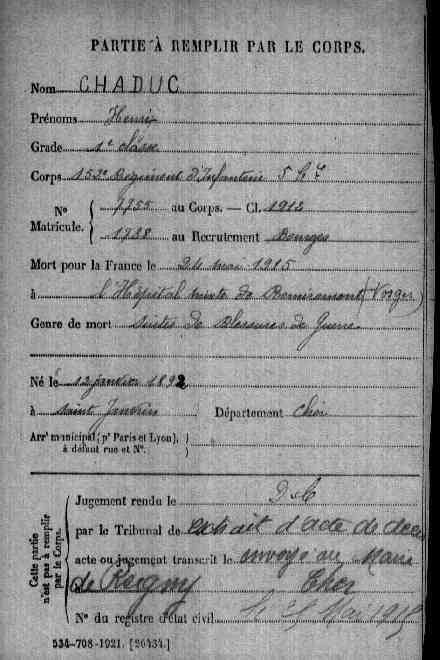 PARTIE À REMPLIR PAR LE CORPS.
Nom CHADUC
Prénoms Henri
Grade 1e classe
Corps 152e Régiment d'Infanterie
Nº 7755 au Corps. — Cl. 1912
Matricule. 1738 au Recrutement Bourges
Mort pour la France le 24 mai 1915
à l'Hôpital mixte de Remiremont (Vosges)
Genre de mort suites de Blessures de Guerre
Né le 12 janvier 1892
à Saint Janvrin Département Cher
Arrt municipal (pr Paris et Lyon),
à défaut rue et Nº.
Cette partie
n'est pas à remplir
par le Corps.
Jugement rendu le
par le Tribunal de extrait d'acte de décès
acte ou jugement transcrit le envoyé au Maire
de Cher
Nº du registre d'état civil Mai 1915
534-708-1921. [26434.]